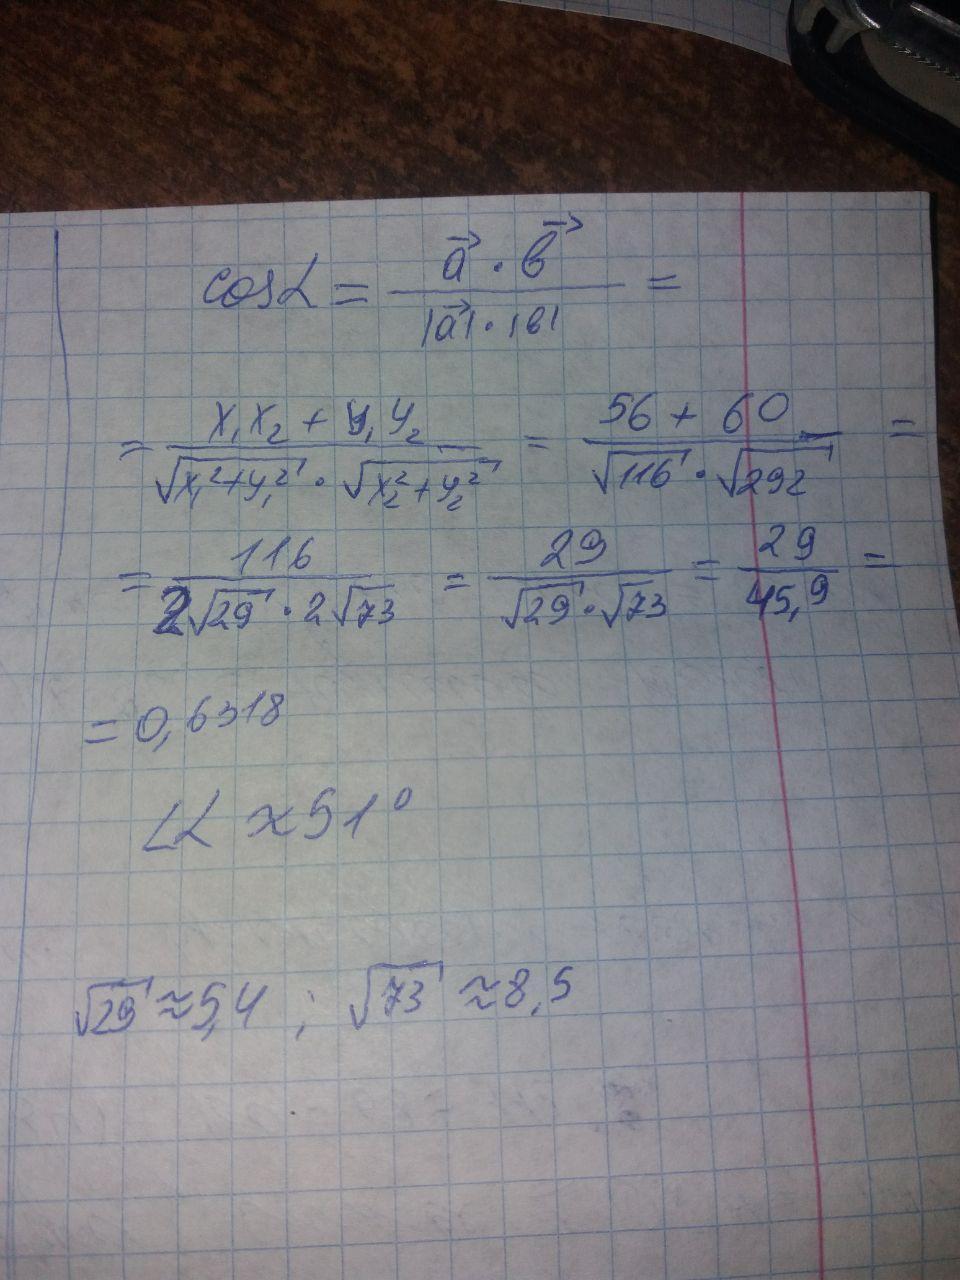 cosα = (a⃗ · b⃗) / (|a⃗| · |b|) =
= (x₁x₂ + y₁y₂) / (√(x₁² + y₁²) · √(x₂² + y₂²)) = (56 + 60) / (√116 · √292) =
= 116 / (2√29 · 2√73) = 29 / (√29 · √73) = 29 / 45,9 =
= 0,6318
∠α ≈ 51°
√29 ≈ 5,4 ; √73 ≈ 8,5